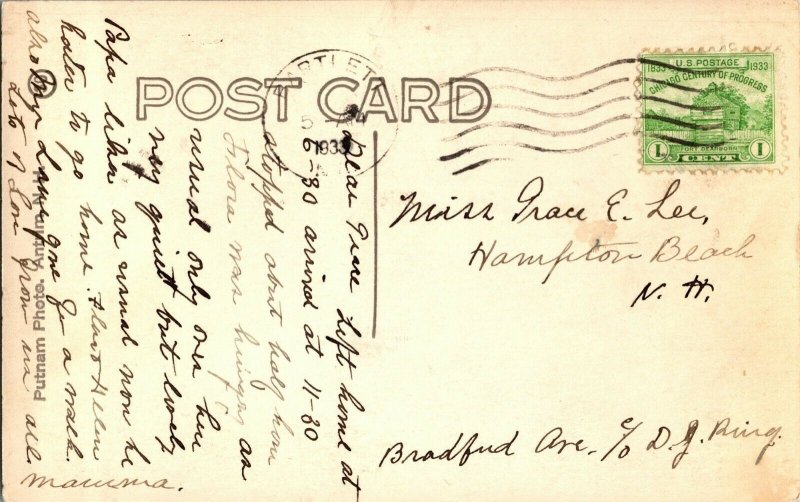 POST CARD
BARTLETT
1933
U.S. POSTAGE
1833 1933
CHICAGO CENTURY OF PROGRESS
FORT DEARBORN
1 CENT 1
Miss Grace E. Lee,
Hampton Beach
N. H.
Bradford Ave. c/o D. J. Ring.
Dear Grace Left home at
6-30 arrived at 11-30
stopped about half hour
Flora was hungry as
usual only over here
very quiet but lovely
Papa likes as usual now he
hates to go home.
Helen
also gone for a walk.
Lots of Love from us all
mamma.
Putnam Photo. Antrim, N.H.